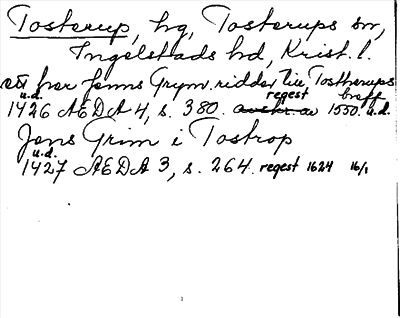 Tosterup, hg, Tosterups sn,
Ingelstads hd, Krist. l.
ett frae Jenns Grym ridder Tostherups breff
u.d. regest
1426 AEDA 4, s. 380. avskr. av 1550. u.d.
Jens Grim i Tostrop
u.d.
1427 AEDA 3, s. 264. regest 1624 16/1